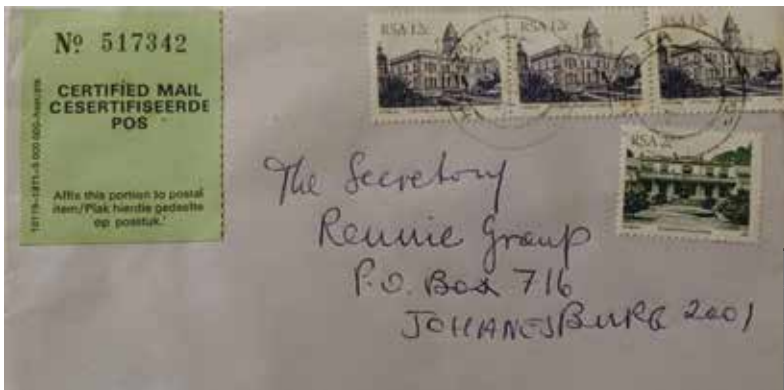 Nº 517342
CERTIFIED MAIL
CESERTIFISEERDE
POS
Affix this portion to postal
item/Plak hierdie gedeelte
op posstuk.
RSA 12c
RSA 12c
RSA 12c
RSA 2c
The Secretary
Rennie Group
P.O. Box 716
JOHANESBURG 2001